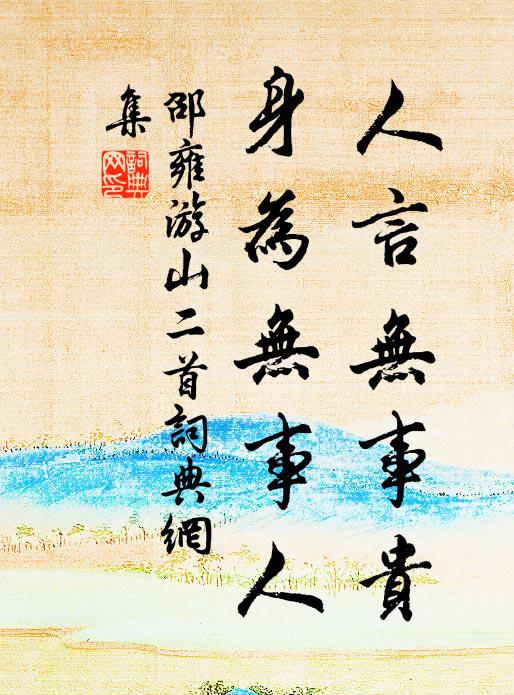 人言無事貴
身為無事人
邵雍游山二首詞典網
集
詞典
網印